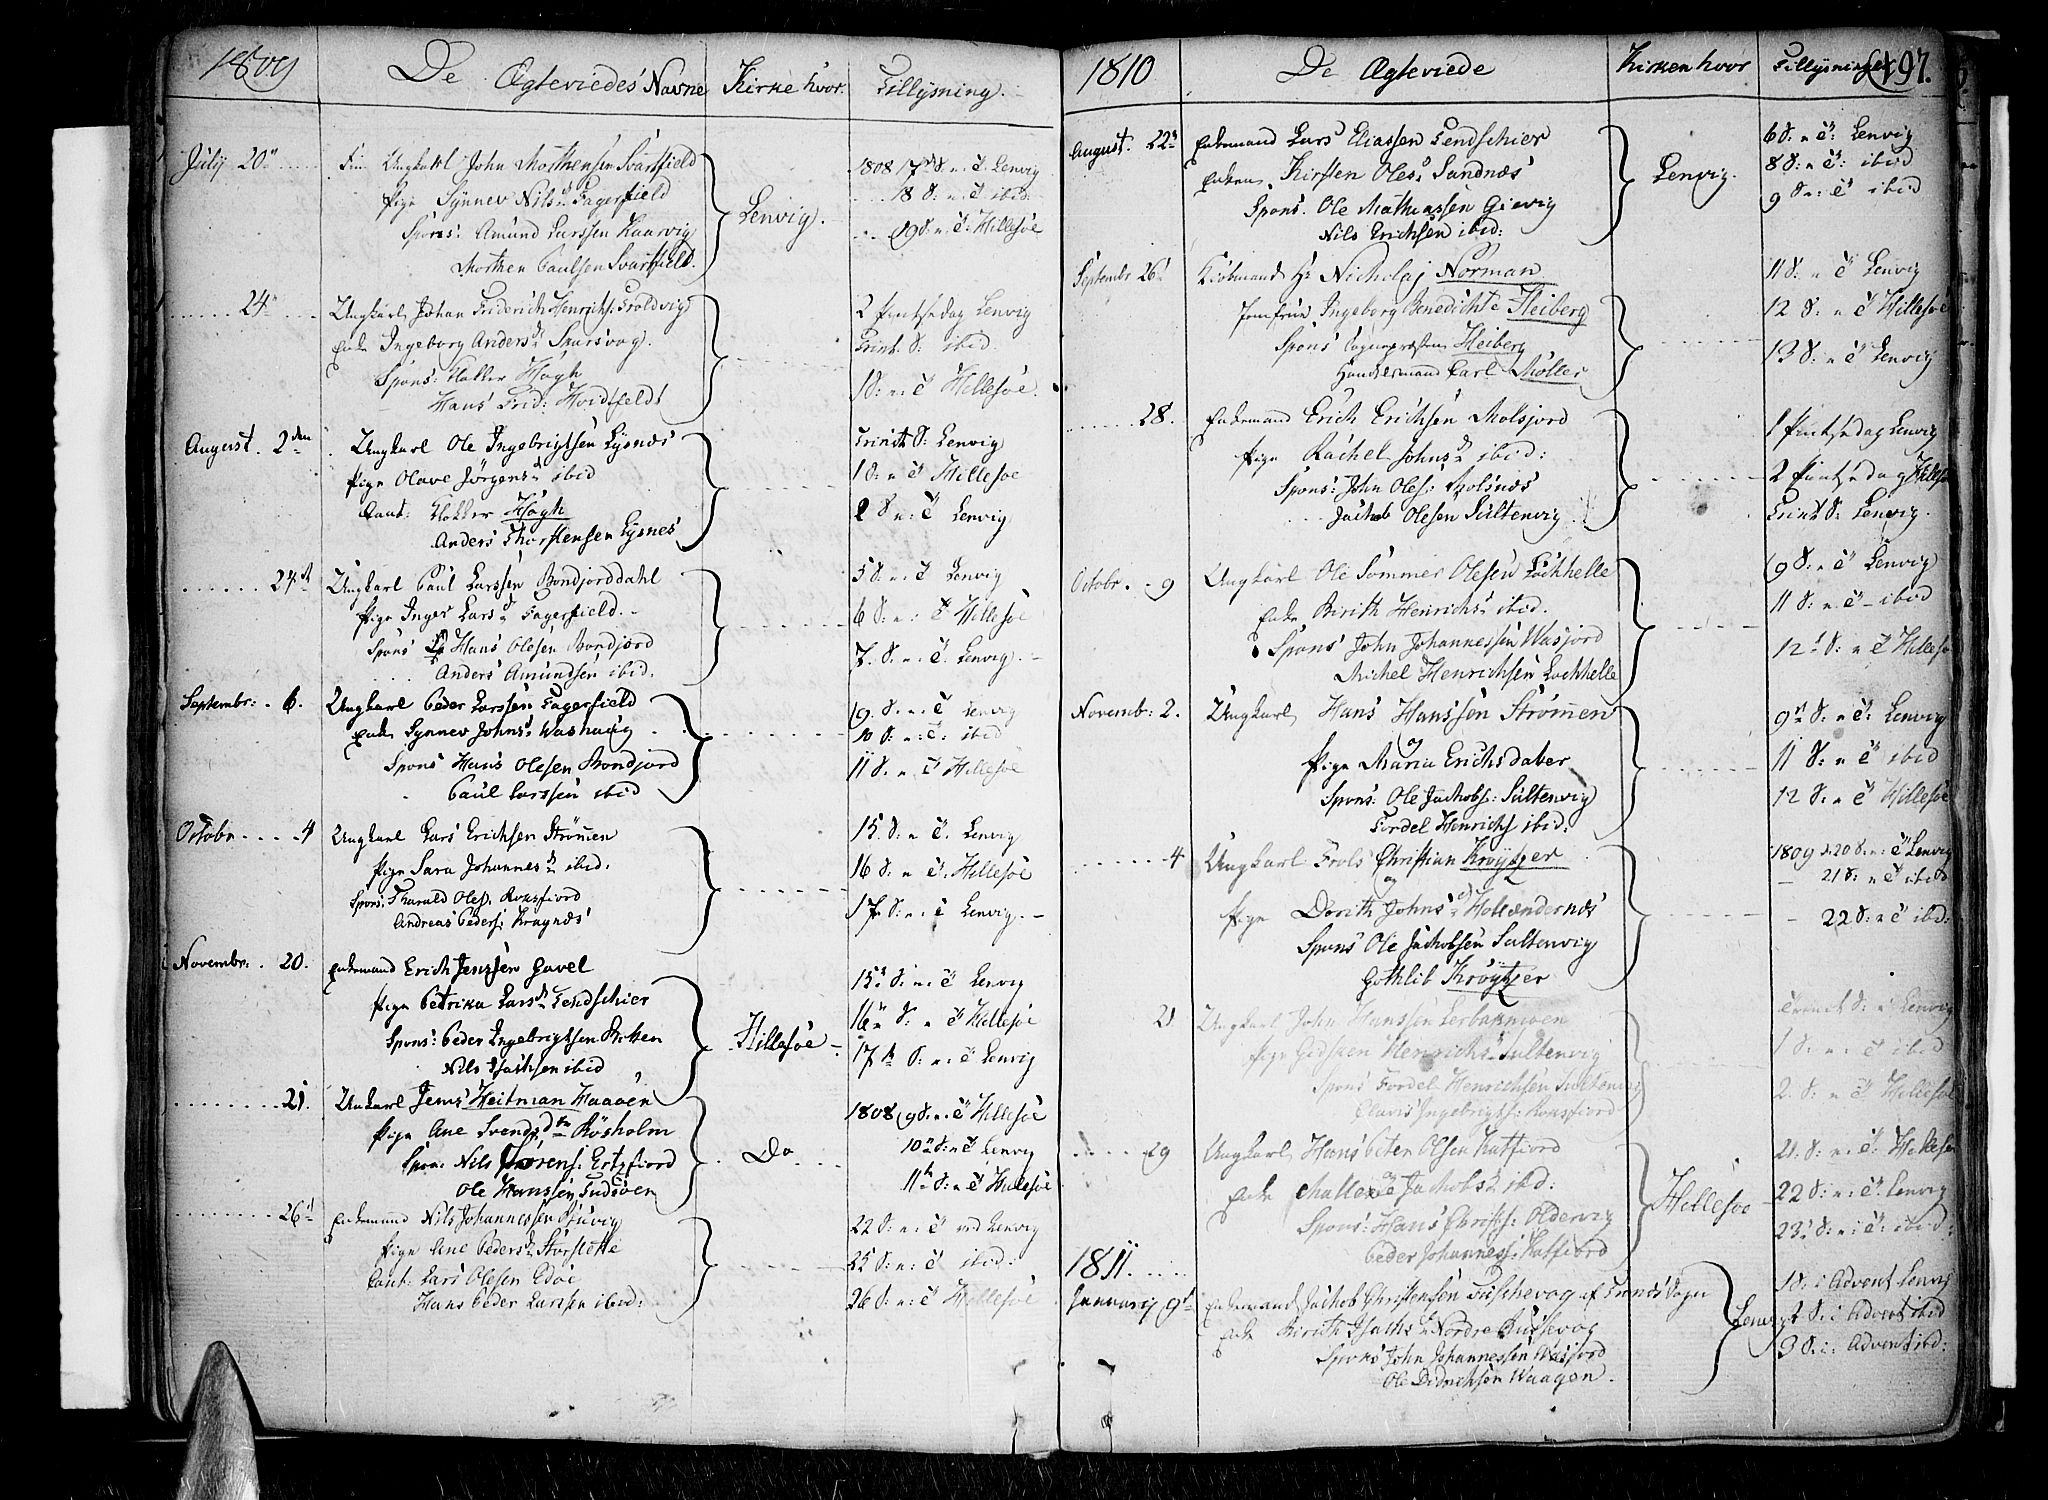 1809
De Ægteviedes Navne
Kirke hvor.
Tillysning.
July 20de
Ungkarl John Morthensen Svartfield
Pige Synnev Nilsd Fagerfield
Spons: Amund Larssen Kaarvig
Morthen Paulsen Svartfield.
Lenvig.
1808 17de S. n. T. Lenvig
18 S: n. T ibid:
19 S. n. T. Hillesöe
24de
Ungkarl Johan Friderich Henrichs: Troldvig
Enke Ingeborg Andersd
Spons: Klokker Högh
Hans Frid: Hvidtfeldt
2 Pintsedag Lenvig
Trint. S: ibid.
1 S: n: T Hillesöe.
August. 2den
Ungkarl Ole Ingebrigtsen Lysnæs
Pige Olave Jörgensd ibid
Caut: Klokker Högh
Anders Thorstensen Lysnes
Trinit S: Lenvig
1 S: n T Hillesoe
2 S n: T Lenvig
24de
Ungkarl Paul Larssen Bondjorddahl
Pige Inger Larsd Fagerfield.
Spons Hans Olesen Bondjord
Anders Amundsen ibid.
5 S: n: T Lenvig
6 S: n: T Hillesöe
7. S: n: T. Lenvig.
Septembr: 6.
Ungkarl Peder Larssen Fagerfield
Enke Synnev Johnsd Washaug
Spons Hans Olesen Bondjord
Paul Larssen ibid
9. S: n: T Lenvig
10 S: n: T: ibid
11 S. n T Hillesöe
Octobr 4
Ungkarl Lars Erichsen Strömen
Pige Sara Johannesd ibid.
Spons: Tharald Oles: Rossfiord
Andreas Peders: Kragnæs
15. S: n T. Lenvig
16 S: n T. Hillesöe
17 S: n: T Lenvig.
Novembr: 20.
Enkemand Erich Jenssen Gavel
Pige Petrika Larsd Tendschier
Spons: Peder Ingebrigtsen Botten
Nils Isachsen ibid
Hillesöe
15de S: n: T Lenvig
16de S: n T Hillesöe
17de S: n: T Lenvig
21.
Unkarl Jems Heitman Haaöen
Pige Ane Svendsd Rösholm
Spon: Nils Sörens: Ertzfiord
Ole Hanssen Tudsöen
Do
1808 9 S. n: T Hillesöe
10de S: n T Lenvig
11te S: n T Hillesöe
26de
Enkemand Nils Johannessen
Pige Ane Pedersd Storslette
Caut: Lars Olesen Edöe
Hans Peder Larssen ibid:
22 S: n: T Lenvig
25 S: n: T ibid:
26 S: n: T Hillesöe
1810
De Ægteviede
Kirken hvor
Tillysninger
197.
August. 22de
Enkemand Lars Eliassen Tendschier
Enken Kirsten Olesd Sandnæs
Spons. Ole Mathiassen Gievig
Nils Erichsen ibid:
Lenvig.
6 S. n T: Lenvig
8 S: n T: ibid
9 S n: T ibid
September 26
Kiöbmand Hr Nicholaj Norman
Jomfrue Ingeborg Benedichte Heiberg
Spons Sognepræsten Heiberg
Handelsmand Carl Möller
11 S: n T Lenvig
12 S: n T Hillesöe
13 S: n T Lenvig
28.
Enkemand Erich Erichsen Molsjord
Pige Rachel Johnsd ibid:
Spons: John Oles:
Jachob Olesen Sultenvig
1 Pintsedag Lenvig
2 Pintsedag Hilles
Trint S: Lenvig.
Octobr. 9
Ungkarl Ole Sommer Olesen Lochhelle
Enke Birith Henrichsd ibid.
Spons John Johannessen Wasjord
Michel Henrichsen Lochhelle
9 S. n T Lenvig
11 S: n T ibid
12 S: n T Hilleso
Novemb: 2.
Ungkarl Hans Hanssen Strömen
og
Pige Maria Erichsdater
Spons: Ole Jachobs: Sultenvig
Fordel Henrichs ibid:
9de S: n T: Lenvig
11 S. n T ibid
12 S: n T Hillesöe
4
Ungkarl Frols Christian Kröytzer
og
Pige Dorith Johnsd Hollændernæs
Spons Ole Jachobsen Sultenvig
Gothlib Kröytzer
1809 d. 20 S. n: T Lenvig
21 S: n T ibid
22 S: n T ibid:
21
Ungkarl John Hanssen Lerbakmoen
Pige Gidsken Henrichsd Sultenvig
Spons Fordel Henrichsen Sultenvig
Clavis Ingebrigts: Rossfiord
Trinit S: Lenvig
1 S: n: T ibid
2. S: n T Hillesöe
29
Ungkarl Hans Peter Olsen Katfiord
og
Enke Malle Jachobsd ibid:
Spons: Hans Christs: Oldervig
Peder Johanness: Katfiord
Hillesöe
21. S: n: T: Hillesö
22 S: n: T. Lenvig
23 S: n: T: ibid:
1811.
Januarij 9de
Enkemand Jachob Christensen Fuschevog af Tranös Sogn
Enke Birith Isachsd Nordre Bussevog
Spons John Johannessen Wasjord
Ole Didrichsen Waagen.
Lenvig
1 S. i Advent Lenvig
2 S. i Advent ibid
3 S. i: Advent ibid: